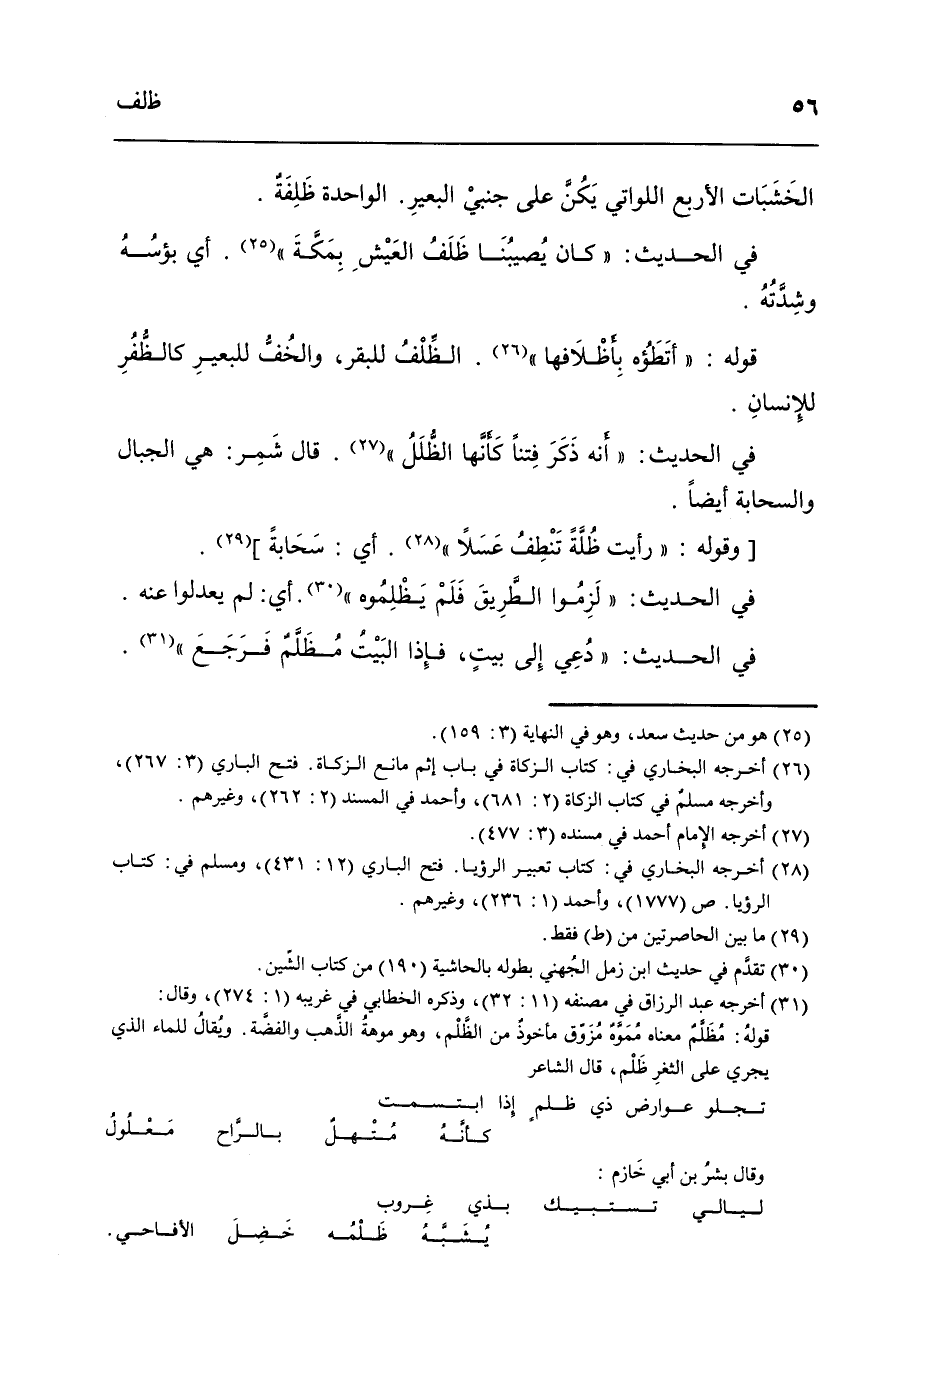 ٥٦ ظالف
الخَشَبَات الأربع اللواتي يَكُنَّ على جنبيْ البعيرِ. الواحدة ظَلِفَةٌ .
في الحديث: « كان يُصيبُنَا ظَلَفُ العَيْشِ بِمَكَّةَ »(٢٥) . أي بؤسُهُ
وشِدَّتُهُ .
قوله : « أتَطَؤُه بِأَظْلَافها »(٢٦) . الظِّلْفُ للبقر، والخُفُّ للبعيرِ كالظُّفُرِ
للإِنسانِ .
في الحديث: « أَنه ذَكَرَ فِتناً كَأَنَّها الظُّلَلُ »(٢٧) . قال شَمِر: هي الجبال
والسحابة أيضاً .
[ وقوله : « رأيت ظُلَّةً تَنْطِفُ عَسَلاً »(٢٨) . أي : سَحَابةً ](٢٩) .
في الحديث: « لَزِمُوا الطَّرِيقَ فَلَمْ يَظْلِمُوه »(٣٠). أي: لم يعدلوا عنه .
في الحديث: « دُعِي إلى بيتٍ، فإذا البَيْتُ مُظَلَّمٌ فَرَجَعَ »(٣١) .
(٢٥) هو من حديث سعد، وهو في النهاية (٣: ١٥٩).
(٢٦) أخرجه البخاري في: كتاب الزكاة في باب إثم مانع الزكاة. فتح الباري (٣: ٢٦٧)،
وأخرجه مسلمٌ في كتاب الزكاة (٢: ٦٨١)، وأحمد في المسند (٢: ٢٦٢)، وغيرهم .
(٢٧) أخرجه الإمام أحمد في مسنده (٣: ٤٧٧).
(٢٨) أخرجه البخاري في: كتاب تعبير الرؤيا. فتح الباري (١٢: ٤٣١)، ومسلم في: كتاب
الرؤيا. ص (١٧٧٧)، وأحمد (١: ٢٣٦)، وغيرهم .
(٢٩) ما بين الحاصرتين من (ط) فقط.
(٣٠) تقدَّم في حديث ابن زمل الجُهني بطوله بالحاشية (١٩٠) من كتاب الشّين.
(٣١) أخرجه عبد الرزاق في مصنفه (١١: ٣٢)، وذكره الخطابي في غريبه (١: ٢٧٤)، وقال:
قولهُ: مُظَلَّمٌ معناه مُمَوَّهٌ مُزَوّق مأخوذٌ من الظَّلْم، وهو موهةُ الذَّهب والفضَّة. ويُقالُ للماء الذي
يجري على الثغرِ ظَلْم، قال الشاعر
تجلو عوارض ذي ظلمٍ إذا ابتسمت
كأنَّهُ مُنْهلٌ بالرَّاح مَعْلُولُ
وقال بشرُ بن أبي خَازم :
ليالي تستبيك بذي غِروب
يُشَبَّهُ ظَلْمُه خَضِلَ الأقاحي.